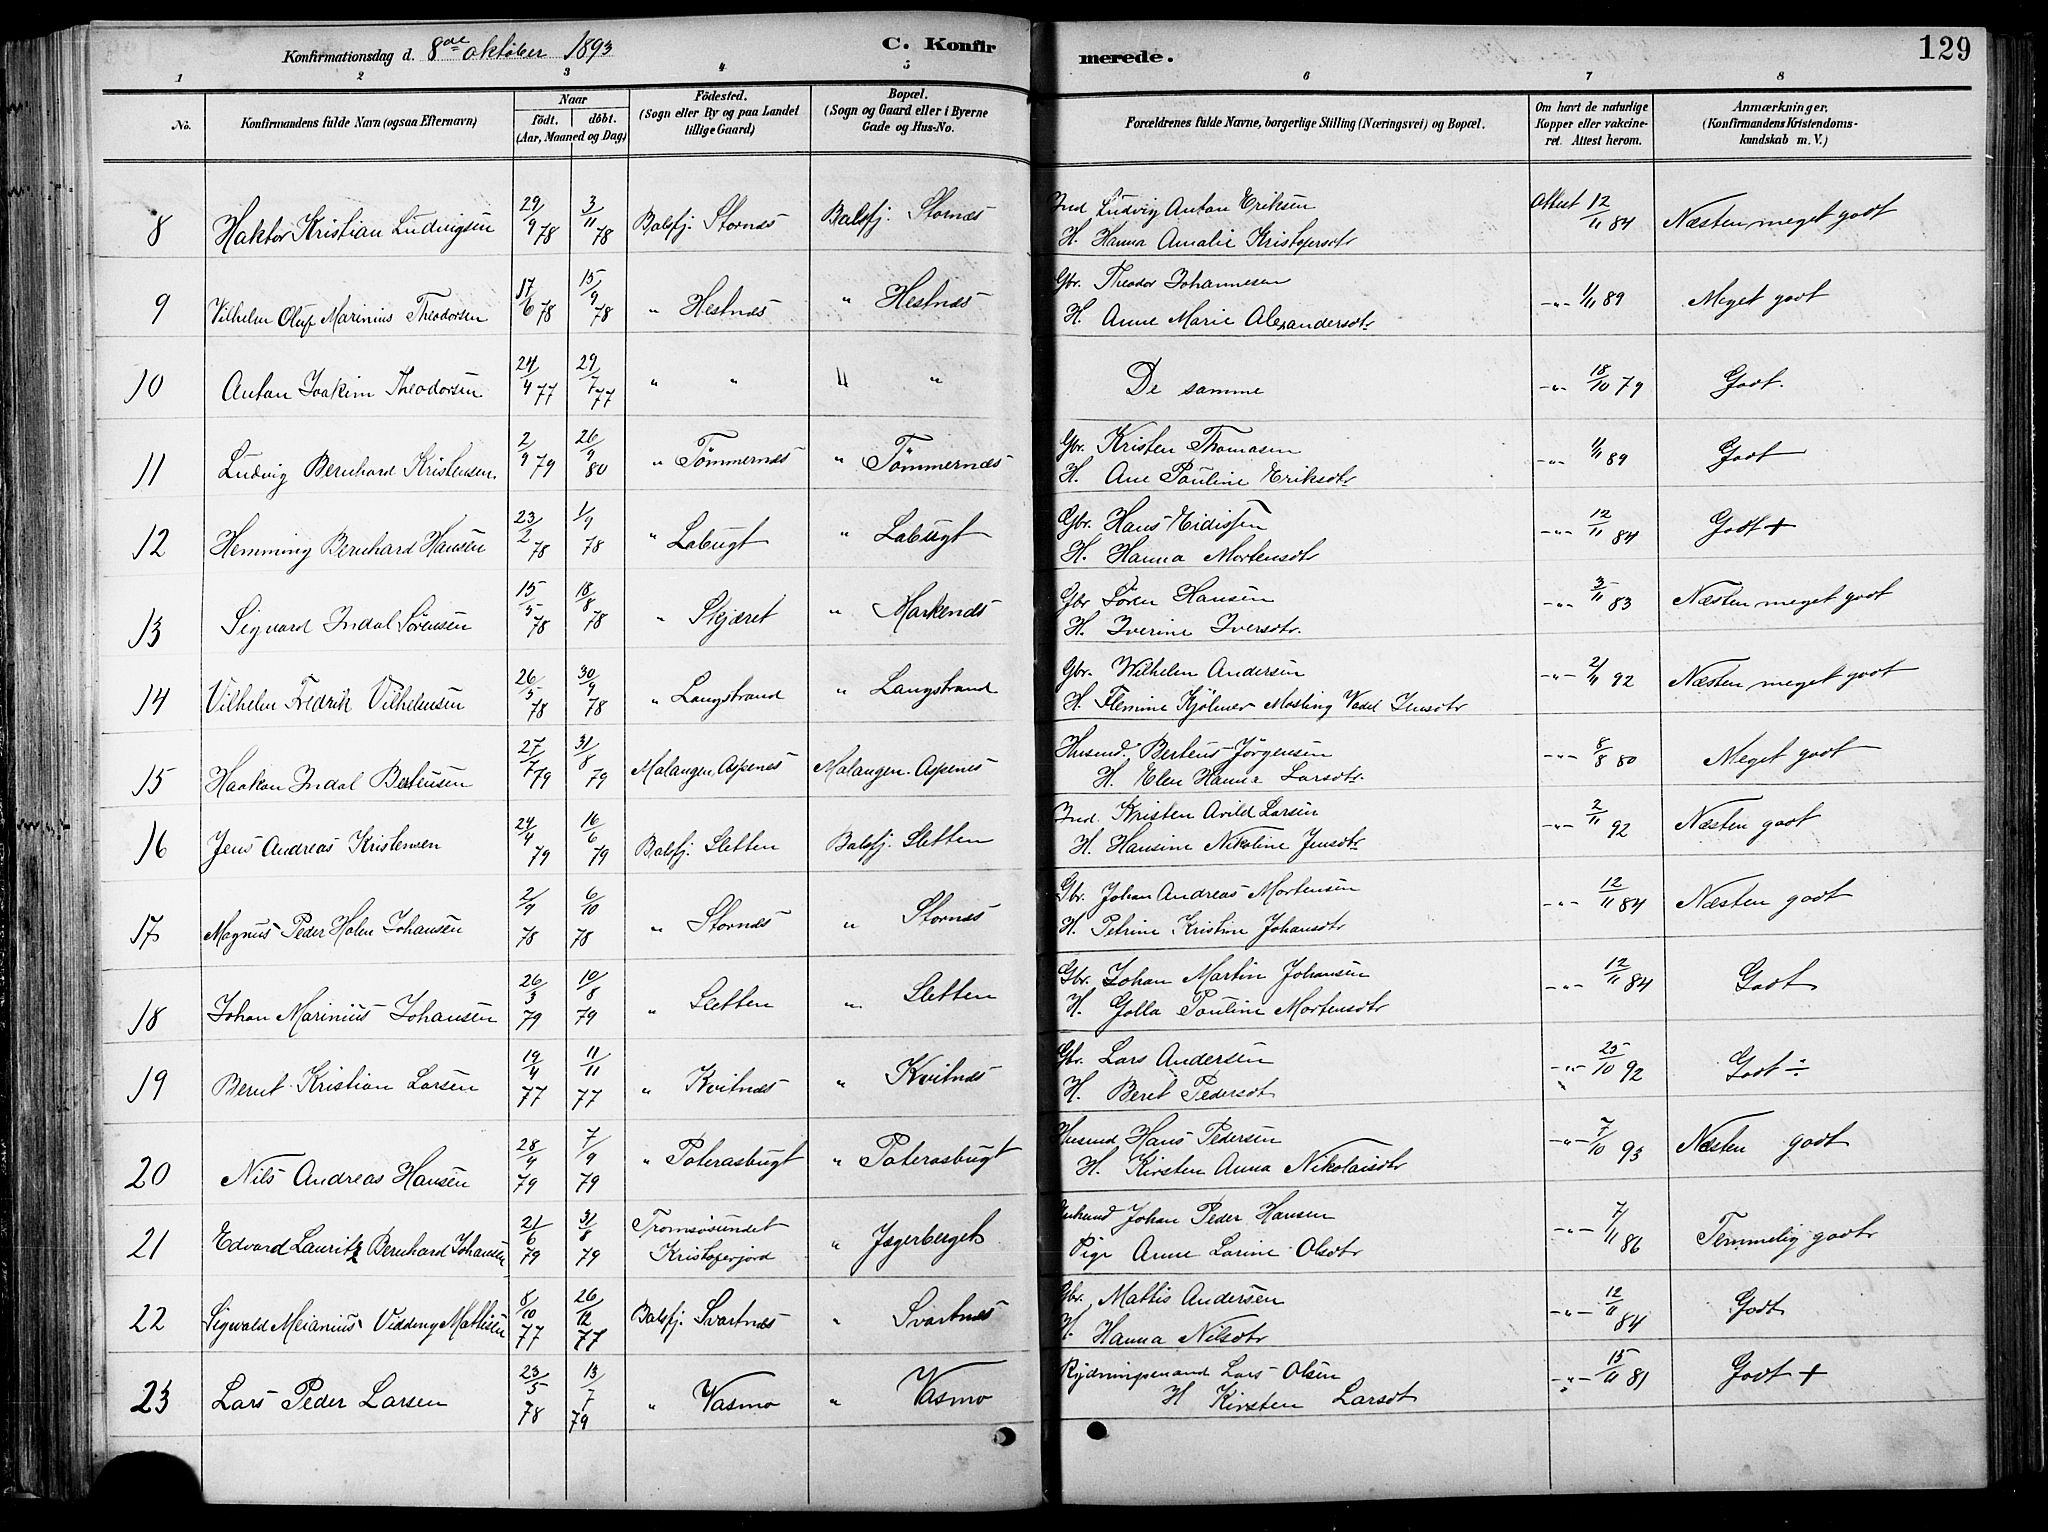 Konfirmationsdag d. 8de oktober 1893 C. Konfirmerede. 129
1 2 3 4 5 6 7 8
No. Konfirmandens fulde Navn (ogsaa Efternavn) Naar født. døbt. (Aar, Maaned og Dag) Fødested. (Sogn eller By og paa Landet tillige Gaard) Bopæl. (Sogn og Gaard eller i Byerne Gade og Hus-No. Forældrenes fulde Navne, borgerlige Stilling (Næringsvei) og Bopæl. Om havt de naturlige Kopper eller vakcineret. Attest herom. Anmærkninger. (Konfirmandens Kristendomskundskab m. V.)
8 Haktor Kristian Ludvigsen 29/9 78 3/11 78 Balsfj. Stornæs Balsfj. Stornæs Ind Ludvig Anton Eriksen Attest 12/11 84 Næsten meget godt
H. Hanna Amalie Kristofersdtr
9 Vilhelm Oluf Marinius Theodorsen 17/6 78 15/9 78 " Hestnæs " Hestnæs Gbr. Theodor Johannesen -"- 1/11 89 Meget godt
H. Anne Marie Alexandersdtr
10 Anton Joakim Theodorsen 24/4 77 29/7 77 " " " " De samme -"- 18/10 79 Godt.
11 Ludvig Bernhard Kristensen. 2/9 79 26/9 80 " Tømmernæs " Tømmernæs Gbr. Kristen Thomasen -"- 1/11 89 Godt
H. Ane Pauline Eriksdtr
12 Hemming Bernhard Hansen 23/2 78 1/9 78 " Labugt " Labugt Gbr. Hans Eidissen -"- 12/11 84 Godt +
H. Hanna Mortensdtr
13 Sigvard Indal Sørensen 15/5 78 18/8 78 " Skjæret " Markenæs Gbr Søren Hansen -"- 3/11 83 Næsten meget godt
H. Iverine Iversdtr.
14 Vilhelm Fredrik Vilhelmsen 26/5 78 30/9 78 " Langstrand " Langstrand Gbr. Wilhelm Andersen -"- 2/11 92 Næsten meget godt
H. Flemine Kjølmer Møsling Vadel Jensdtr
15 Haakon Indal Berteusen 27/7 79 31/8 79 Malangen, Aspenes Malangen. Aspenes Husmd. Berteus Jørgensen -"- 8/8 80 Meget godt
H. Elen Hanna Larsdtr.
16 Jens Andreas Kristensen 24/4 79 16/6 79 Balsfj. Sletten Balsfj. Sletten Ind. Kristen Arild Larsen -"- 2/11 92 Næsten godt
H. Hansine Nikoline Jensdtr
17 Magnus Peder Holm Johansen 2/9 78 6/10 78 " Stornæs " Stornæs Gbr. Johan Andreas Mortensen -"- 12/11 84 Næsten godt
H. Petrine Kristine Johansdtr
18 Johan Marinius Johansen 26/3 79 10/8 79 " Sletten " Sletten Gbr. Johan Martin Johansen -"- 12/11 84 Godt
H. Golla Pauline Mortensdtr
19 Bernt Kristian Larsen 19/4 77 11/11 77 " Kvitnæs " Kvitnæs Gbr. Lars Andersen -"- 25/10 92 Godt ÷
H. Beret Pedersdt
20 Nils Andreas Hansen 28/4 79 7/9 79 " Paterasbugt " Paterasbugt Husmd Hans Pedersen -"- 7/10 93 Næsten godt
H. Kirsten Anna Nikolaisdtr
21 Edvard Lauritz Bernhard Johansen 21/6 79 31/8 79 Tromsøsundet Kristoferjord " Jægerberget Johan Peder Hansen -"- 7/11 86 Temmelig godt
Pige Anne Larine Olsdtr
22 Sigvald Meianius Vidding Mathisen 8/10 77 26/12 77 Balsfj. Svartnæs " Svartnæs Gbr. Mattis Andersen -"- 12/11 84 Godt
H. Hanna Nilsdtr
23 Lars Peder Larsen 23/5 78 13/7 79 " Vasmo " Vasmo Rydningsmand Lars Olsen -"- 15/11 81 Godt +
H Kirsten Larsdt